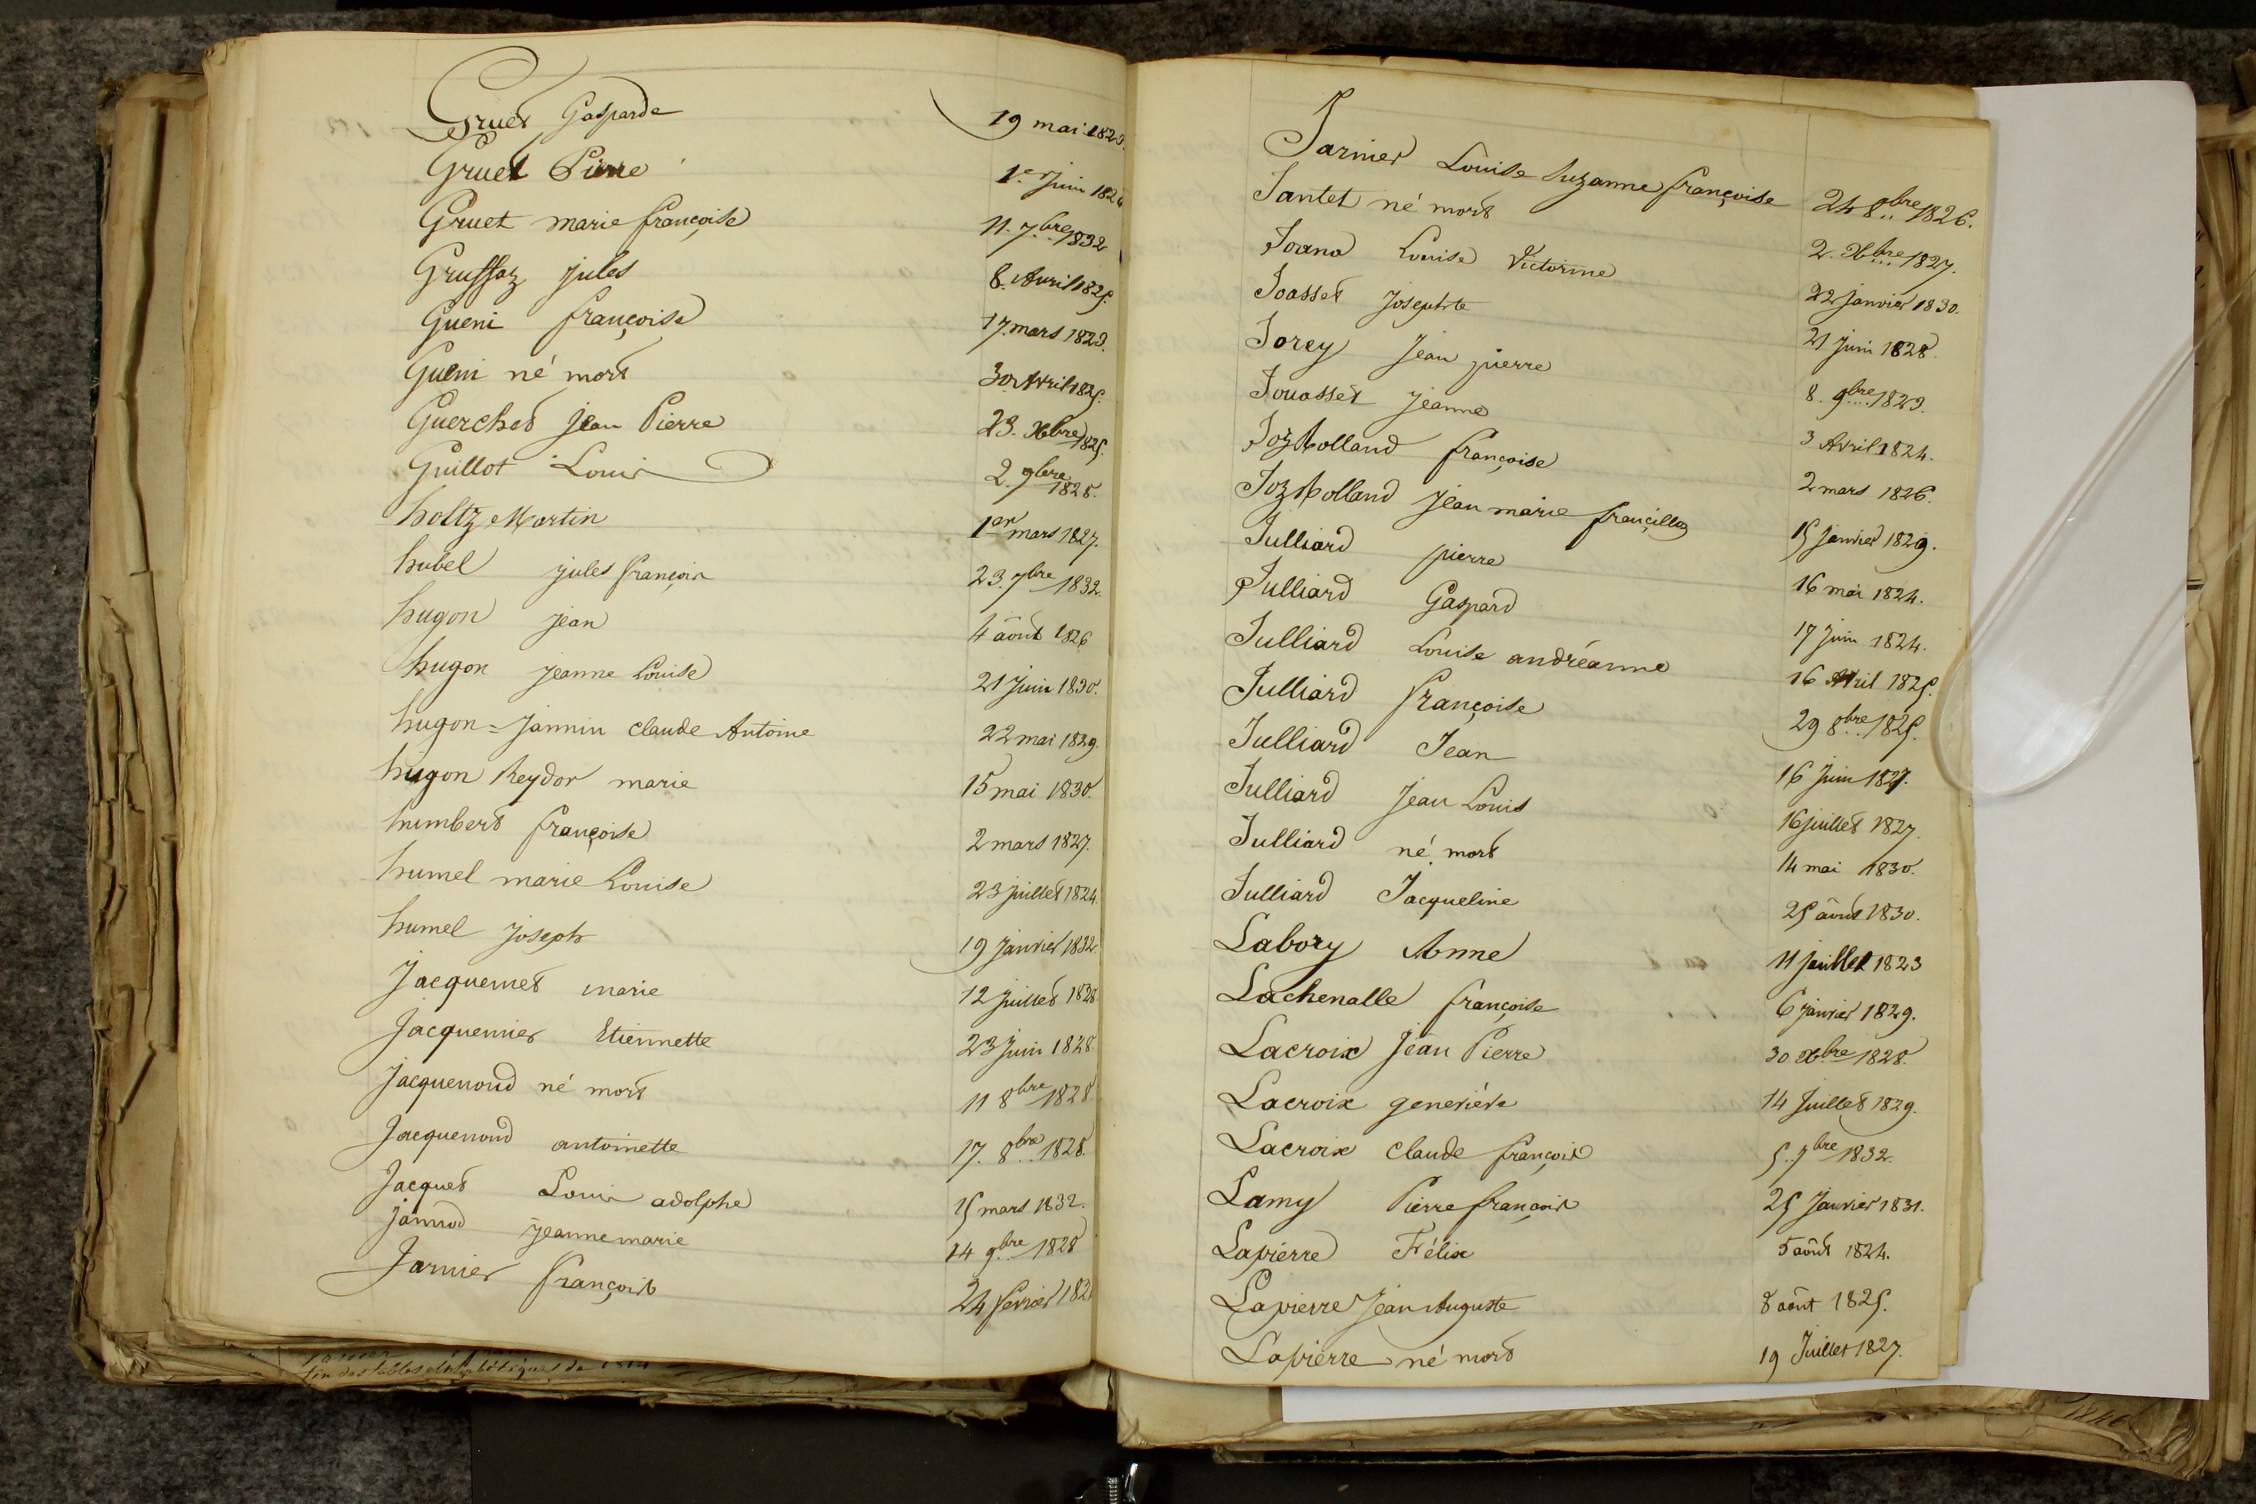 Gruet Gasparde 19 mai 1823.
Gruet Pierre 1er Juin 1826
Gruet marie françoise 11. 7bre 1832
Gruffaz jules 8. Avril 1825.
Gueni françoise 17. mars 1823.
Gueni né mort 30 Avril 1825.
Guerchet jean Pierre 23. Xbre 1825.
Guillot Louis 2. 9bre 1828.
holtz Martin 1er mars 1827.
hubel jules françois 23. 7bre 1832.
hugon jean 4 âout 1826
hugon jeanne Louise 21 Juin 1830.
hugon-Jannin claude Antoine 22 mai 1829.
hugon Reydor marie 15 mai 1830.
humbert françoise 2 mars 1827.
humel marie Louise 23 juillet 1824.
humel joseph 19 janvier 1832.
Jacquemet marie 12 juillet 1828
Jacquemier Etiennette 23 Juin 1828.
Jacquenoud né mort 11 8bre 1828
Jacquenoud antoinette 17. 8bre 1828.
Jacquet Louis adolphe 15 mars 1832.
janiod jeanne marie 14 9bre 1828
Jarnier françois 24 fevrier 182
Jarnier Louise Suzanne françoise 24 8bre 1826.
Jantet né mort 2. Xbre 1827.
Joana Louise Victorine 22 janvier 1830.
Joasset josephte 21 juin 1828.
Jorey Jean pierre 8. 9bre 1823.
Jouasset jeanne 3 Avril 1824.
Joz Rolland françoise 2 mars 1826.
Joz Rolland jean marie françillon 15 janvier 1829.
Julliard pierre 16 mai 1824.
Julliard Gaspard 17 juin 1824.
Julliard Louise andréanne 16 Avril 1825.
Julliard françoise 29 8bre 1825.
Julliard Jean 16 Juin 1827.
Julliard jean Louis 16 juillet 1827.
Julliard né mort 14 mai 1830.
Julliard Jacqueline 25 âout 1830.
Labory Anne 11 juillet 1823
Lachenalle françoise 6 janvier 1829.
Lacroix Jean Pierre 30 Xbre 1828.
Lacroix geneviève 14 Juillet 1829.
Lacroix claude françois 5. 7bre 1832.
Lamy Pierre françois 25 Janvier 1831.
Lapierre Félix 5 août 1824.
Lapierre Jean Auguste 8 août 1825.
Lapierre né mort 19 Juillet 1827.
fin des tables alphabétiques de